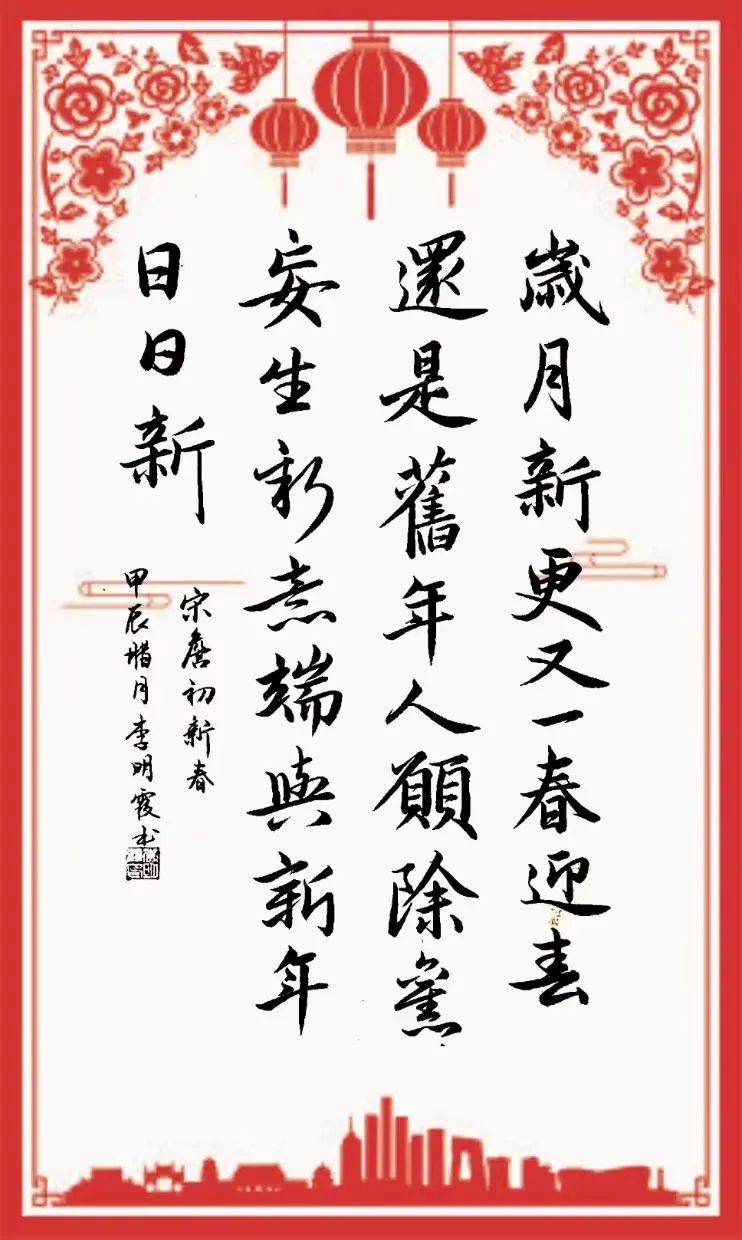 歲月新更又一春迎春
還是舊年人願除舊
妄生新意端與新年
日日新
宋詹初新春
甲辰腊月李明霞书